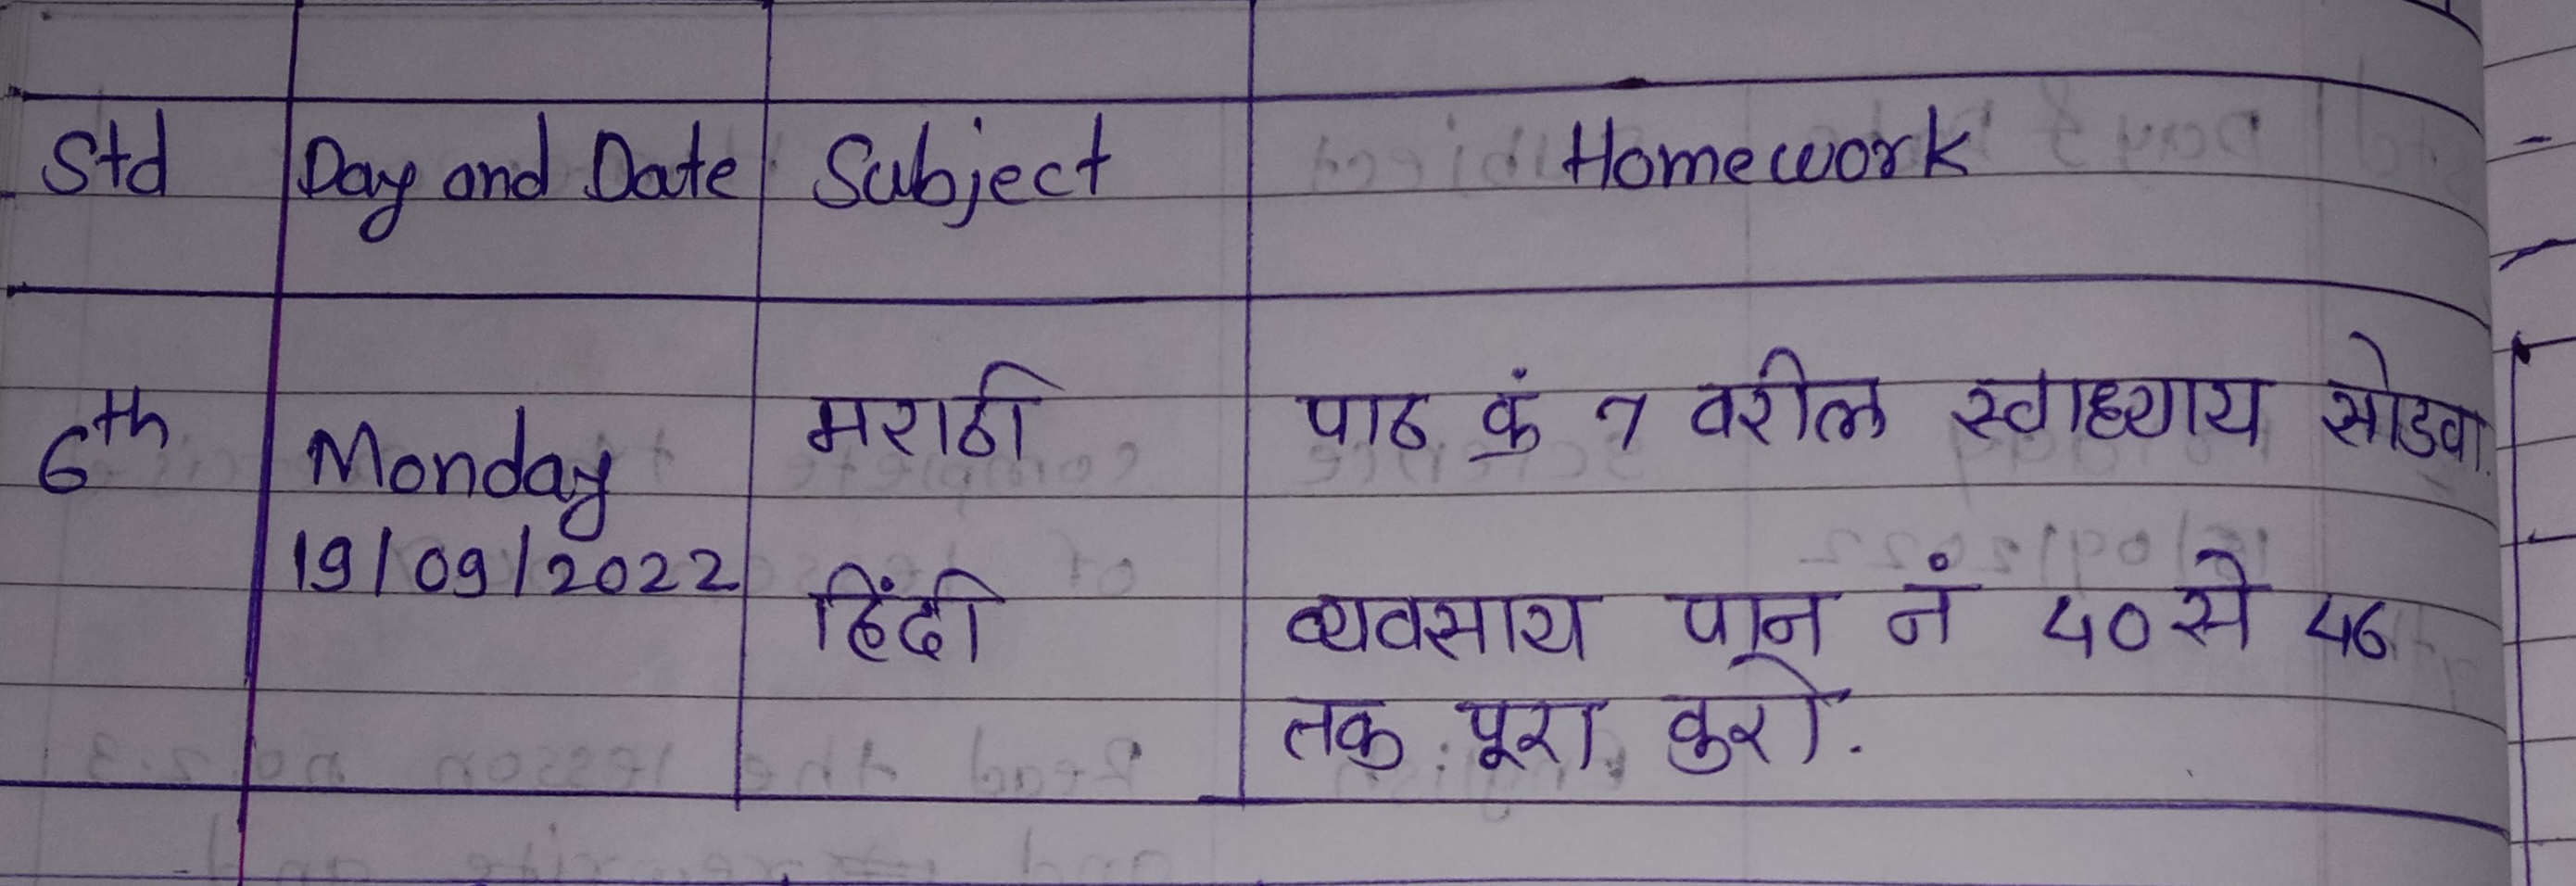 Std Day and Date Subject Homework
6th Monday मराठी पाठ क्रं 7 वरील स्वाध्याय सोडवा.
19/09/2022 हिंदी व्यवसाय पान नं 40 से 46
तक पूरा करो.